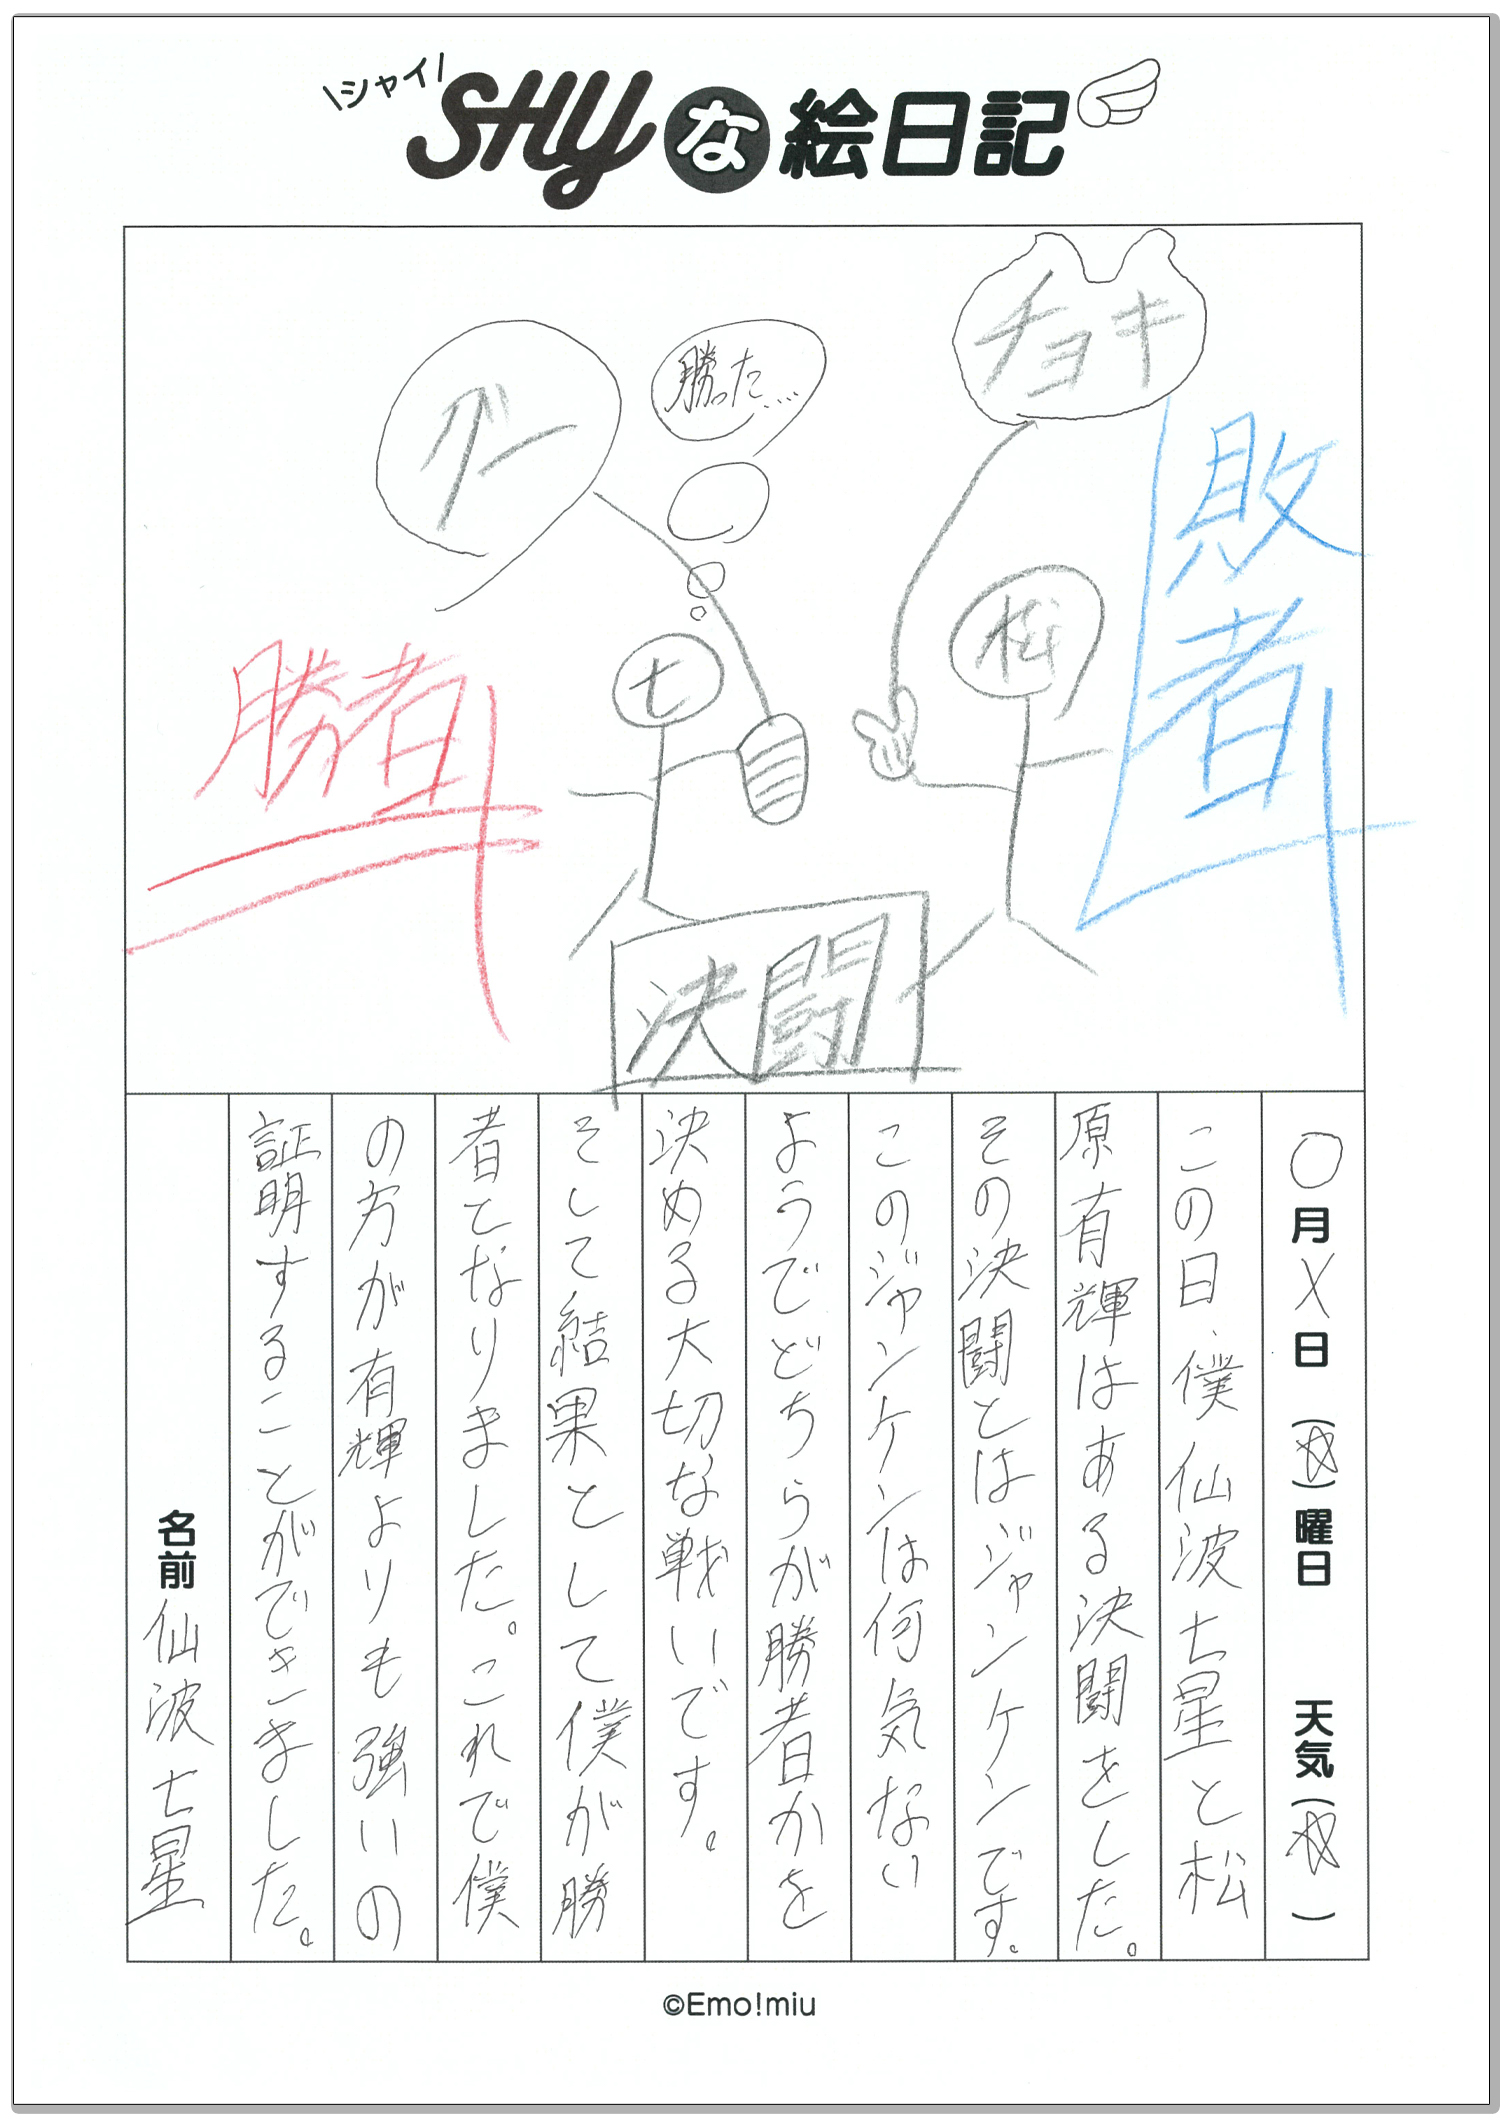 \シャイ/
SHYな絵日記
グー
勝った…
チョキ
七
松
勝者
敗者
決闘
〇月X日(☆)曜日 天気(☆)
この日、僕仙波七星と松
原有輝はある決闘をした。
その決闘とはジャンケンです。
このジャンケンは何気ない
ようでどちらが勝者かを
決める大切な戦いです。
そして結果として僕が勝
者となりました。これで僕
の方が有輝よりも強いの
証明することができました。
名前 仙波七星
©Emo!miu